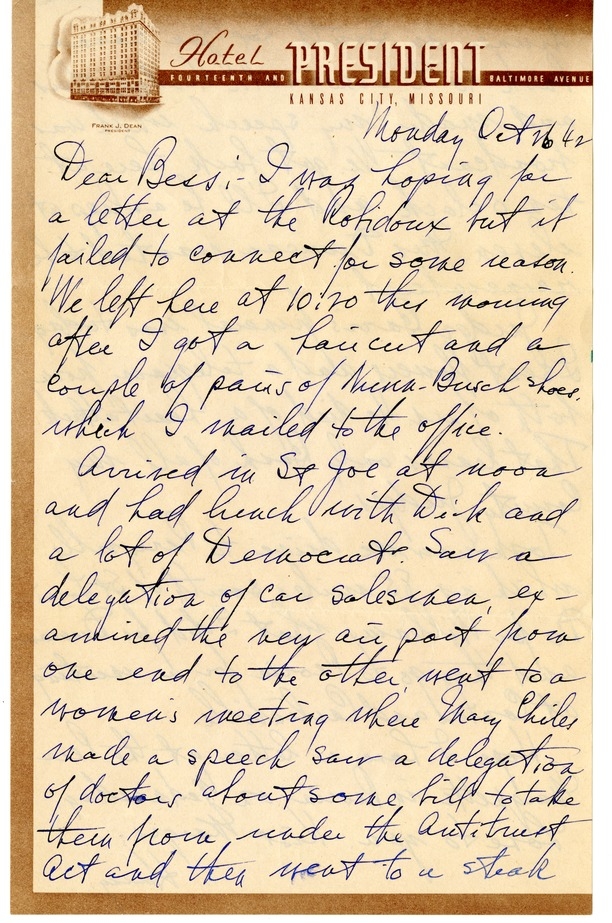 Hotel PRESIDENT
FOURTEENTH AND BALTIMORE AVENUE
KANSAS CITY, MISSOURI
FRANK J. DEAN
PRESIDENT
Monday Oct 26 42
Dear Bess:- I was hoping for
a letter at the Robidoux but it
failed to connect for some reason.
We left here at 10:20 this morning
after I got a haircut and a
couple of pairs of Nunn-Busch shoes.
which I mailed to the office.
Arrived in St Joe at noon
and had lunch with Dick and
a lot of Democrats. Saw a
delegation of car salesmen, ex-
amined the new air port from
one end to the other, went to a
women's meeting where Mary Chiles
made a speech saw a delegation
of doctors about some bill to take
them from under the Antitrust
Act and then went to a steak